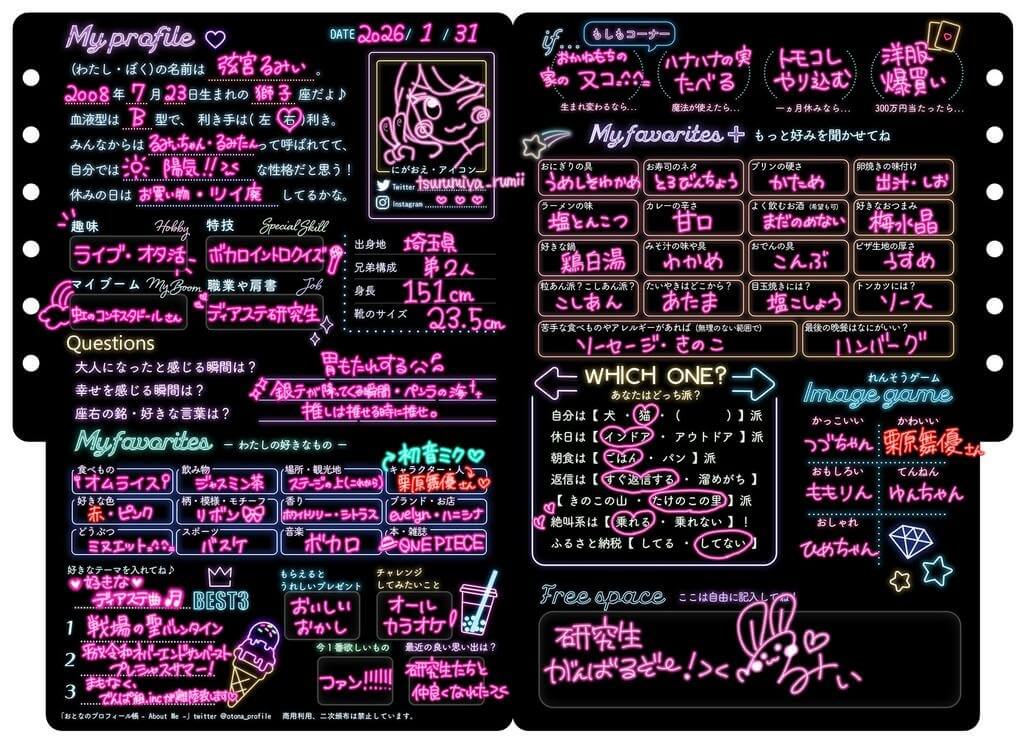 My profile
DATE 2026/ 1 / 31
(わたし・ぼく)の名前は 弦宮るみぃ 。
2008年 7月 23日生まれの 獅子座だよ♪
血液型は B 型で、 利き手は( 左 右 )利き。
みんなからは るみぃちゃん・るみたんって呼ばれてて、
自分では 陽気!! な性格だと思う!
休みの日は お買い物・ツイ廃 してるかな。
にがおえ・アイコン
Twitter tsurumiya_rumii
Instagram ♡ ♡ ♡
趣味 Hobby
ライブ・オタ活
特技 Special Skill
ボカロイントロクイズ
マイブーム My Boom
虹のコンキスタドールさん
職業や肩書 Job
ディアステ研究生
出身地 埼玉県
兄弟構成 弟2人
身長 151cm
靴のサイズ 23.5cm
Questions
大人になったと感じる瞬間は? 胃もたれする
幸せを感じる瞬間は? 銀テが降ってくる瞬間・ペンラの海
座右の銘・好きな言葉は? 推しは推せる時に推せ。
My favorites ー わたしの好きなもの ー
食べもの オムライス
飲み物 ジャスミン茶
場所・観光地 ステージの上(これから)
キャラクター・人 初音ミク♡ 栗原舞優さん♡
好きな色 赤・ピンク
柄・模様・モチーフ リボン
香り ホワイトリリー・シトラス
ブランド・お店 evelyn・ハニシナ
どうぶつ ミヌエット
スポーツ バスケ
音楽 ボカロ
本・雑誌 ONE PIECE
好きなテーマを入れてね♪
♥好きな♥
ディアステ曲♫
BEST3
1 戦場の聖バレンタイン
2 平成令和ネバーエンドサンバースト
プレミアスサマー!
3 まもなく、
でんぱ組.incが離陸致します♡
もらえると
うれしいプレゼント
おいしい
おかし
チャレンジ
してみたいこと
オール
カラオケ
今1番欲しいもの
ファン!!!!!
最近の良い思い出は?
研究生たちと
仲良くなれた
「おとなのプロフィール帳 - About Me -」twitter @otona_profile 商用利用、二次頒布は禁止しています。
if... もしもコーナー
おかねもちの
家の ヌコ
生まれ変わるなら…
ハナハナの実
たべる
魔法が使えたら…
トモコレ
やり込む
一ヵ月休みなら…
洋服
爆買い
300万円当たったら…
My favorites + もっと好みを聞かせてね
おにぎりの具 うめしそわかめ
お寿司のネタ とろびんちょう
プリンの硬さ かため
卵焼きの味付け 出汁・しお
ラーメンの味 塩とんこつ
カレーの辛さ 甘口
よく飲むお酒(希望も可) まだのめない
好きなおつまみ 梅水晶
好きな鍋 鶏白湯
みそ汁の味や具 わかめ
おでんの具 こんぶ
ピザ生地の厚さ うすめ
粒あん派?こしあん派? こしあん
たいやきはどこから? あたま
目玉焼きには? 塩こしょう
トンカツには? ソース
苦手な食べものやアレルギーがあれば(無理のない範囲で) ソーセージ・きのこ
最後の晩餐はなにがいい? ハンバーグ
WHICH ONE?
あなたはどっち派?
自分は【 犬 ・ 猫 ・ ( ) 】派
休日は【 インドア ・ アウトドア 】派
朝食は【 ごはん ・ パン 】派
返信は【 すぐ返信する ・ 溜めがち 】
【 きのこの山 ・ たけのこの里 】派
絶叫系は【 乗れる ・ 乗れない 】!
ふるさと納税【 してる ・ してない 】
れんそうゲーム
Image game
かっこいい つづちゃん
かわいい 栗原舞優さん
おもしろい ももりん
てんねん ゆんちゃん
おしゃれ ひめちゃん
Free space ここは自由に記入してね!
研究生
がんばるぞー!><
るみぃ